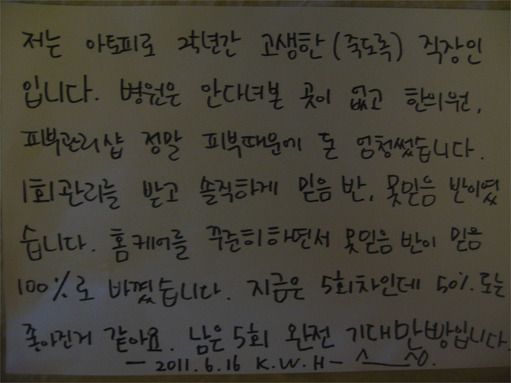 저는 아토피로 25년간 고생한 (죽도록) 직장인
입니다. 병원은 안다녀본 곳이 없고 한의원,
피부관리샵 정말 피부때문에 돈 엄청썼습니다.
1회관리를 받고 솔직하게 믿음 반, 못믿음 반이였
습니다. 홈케어를 꾸준히하면서 못믿음반이 믿음
100%로 바꼈습니다. 지금은 5회차인데 50% 도는
좋아진거 같아요. 남은 5회 완전 기대만방입니다.
- 2011. 6. 16 K.W.H -